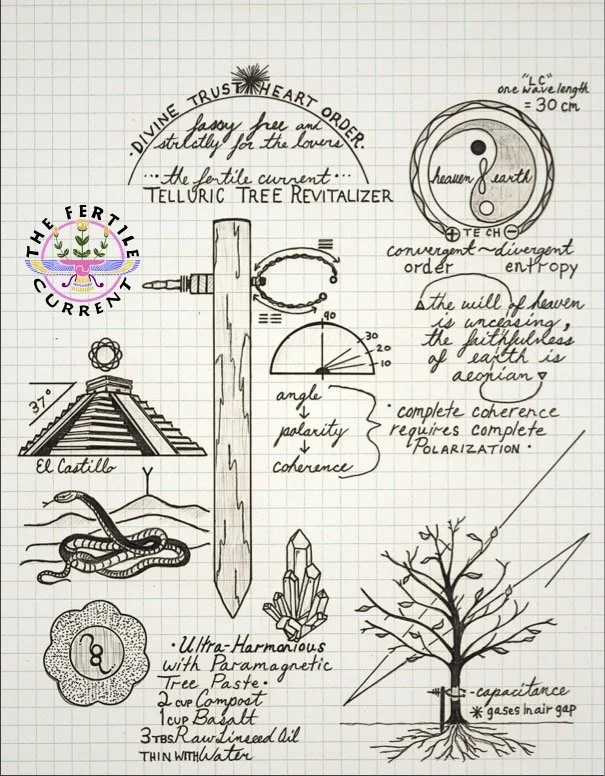 "LC"
one wavelength
= 30 cm
· DIVINE TRUST HEART ORDER ·
fussy free and
strictly for the lovers.
... the fertile current ...
TELLURIC TREE REVITALIZER
heaven earth
+ TECH -
convergent ~ divergent
order entropy
THE FERTILE
CURRENT
the will of heaven
is unceasing,
the faithfulness
of earth is
aeonian
90
30
20
10
angle
polarity
coherence
· complete coherence
requires complete
POLARIZATION ·
37°
El Castillo
· Ultra-Harmonious
with Paramagnetic
Tree Paste ·
2 CUP Compost
1 CUP Basalt
3 TBS Raw Linseed Oil
THIN WITH Water
- capacitance
* gases in air gap